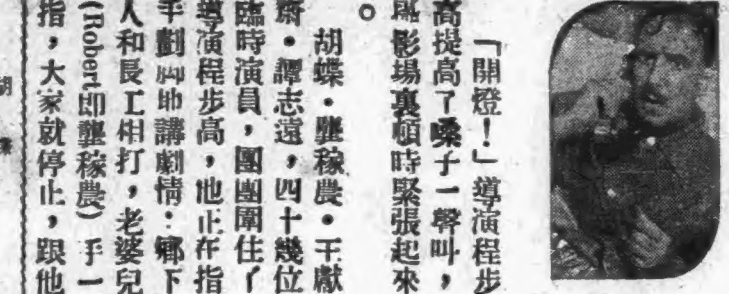 「開燈！」導演程步
高提高了嗓子一聲叫，
攝影場裏頓時緊張起來
。
胡蝶・龔稼農・王獻
齋・譚志遠，四十幾位
臨時演員，團團圍住了
導演程步高，他正在指
手劃脚地講劇情：鄉下
人和長工相打，老婆兒
(Robert即龔稼農) 手一
指，大家就停止，跟他